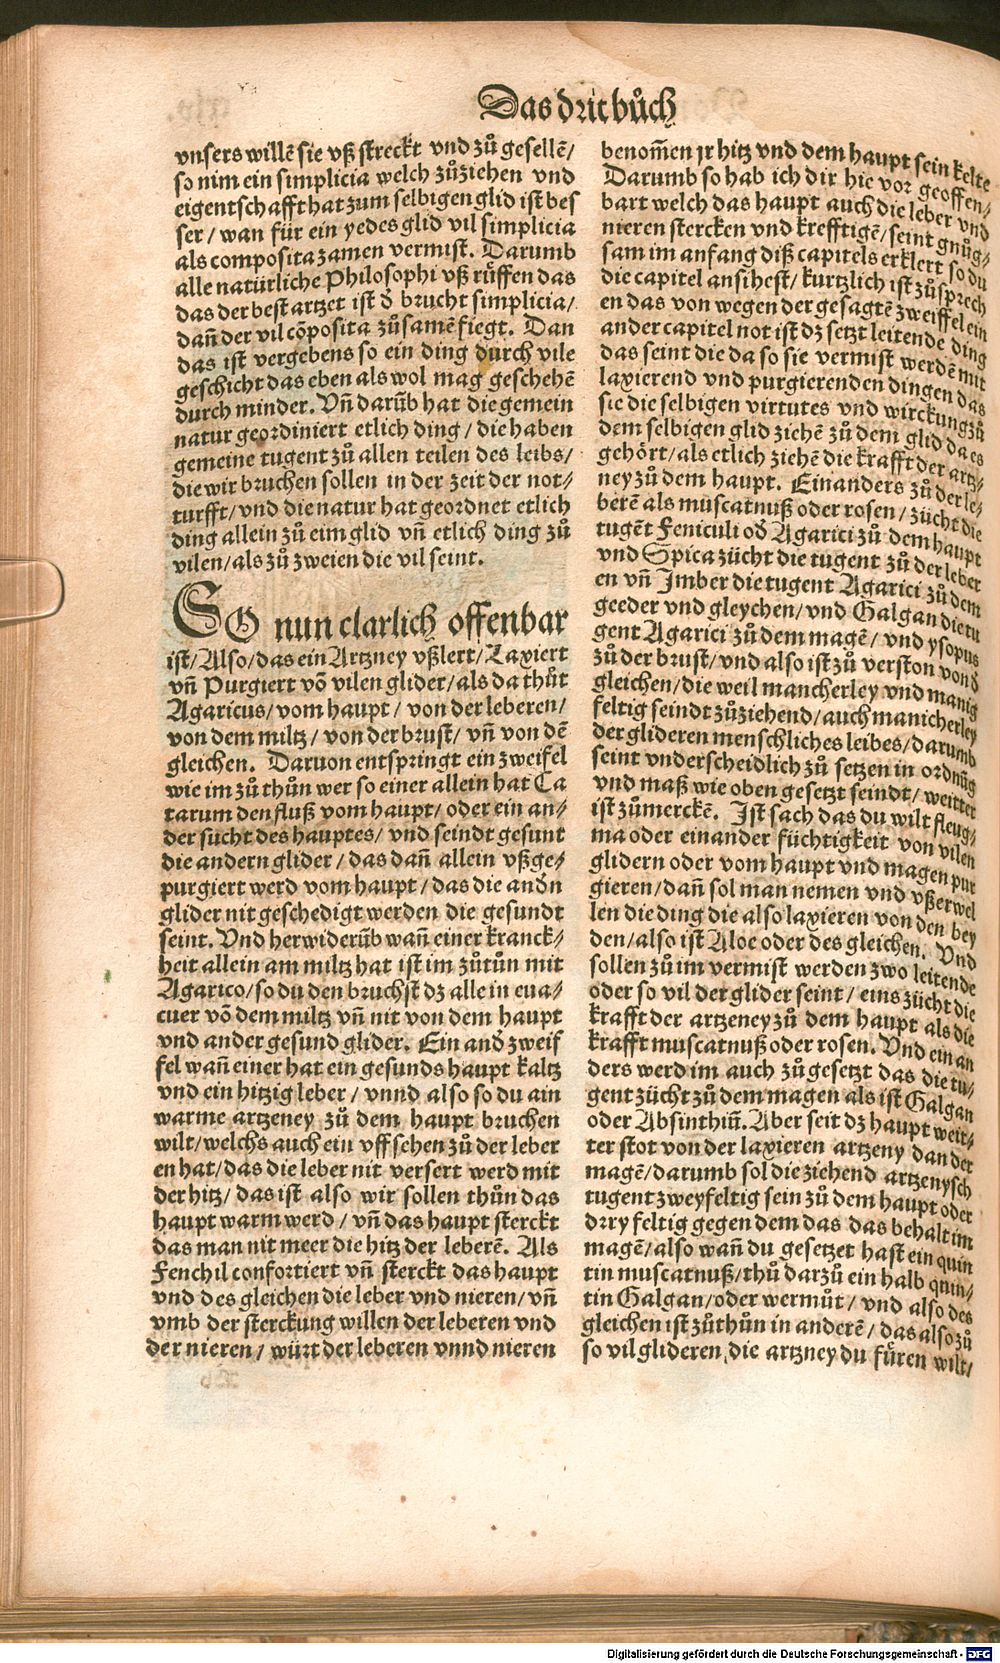 Das drit bůch
vnsers willē sie vß streckt vnd zů gesellē/
so nim ein simplicia welch zůziehen vnd
eigentschafft hat zum selbigen glid ist bes
ser/ wan für ein yedes glid vil simplicia
als composita zamen vermist. Darumb
alle natürliche Philosophi vß rüffen das
das der best artzet ist d̕ brucht simplicia/
dañ der vil cōposita zůsamē fiegt. Dan
das ist vergebens so ein ding durch vile
geschicht das eben als wol mag geschehē
durch minder. Vñ darūb hat die gemein
natur geordiniert etlich ding/ die haben
gemeine tugent zů allen teilen des leibs/
die wir bruchen sollen in der zeit der not⸗
turfft/ vnd die natur hat geordnet etlich
ding allein zů eim glid vñ etlich ding zů
vilen/ als zů zweien die vil seint.
SO nun clarlich offenbar
ist/ Also/ das ein Artzney vßlert/ Laxiert
vñ Purgiert vō vilen glider/ als da thůt
Agaricus/ vom haupt/ von der leberen/
von dem miltz/ von der brust/ vñ von dē
gleichen. Daruon entspringt ein zweifel
wie im zů thůn wer so einer allein hat Ca
tarum den fluß vom haupt/ oder ein an⸗
der sucht des hauptes/ vnd seindt gesunt
die andern glider/ das dañ allein vßge⸗
purgiert werd vom haupt/ das die andn̄
glider nit geschedigt werden die gesundt
seint. Vnd herwiderūb wañ einer kranck⸗
heit allein am miltz hat ist im zůtůn mit
Agarico/ so du den bruchst dz allein eua⸗
cuer vō dem miltz vñ nit von dem haupt
vnd ander gesund glider. Ein and̕ zweif
fel wañ einer hat ein gesunds haupt kaltz
vnd ein hitzig leber/ vnnd also so du ain
warme artzeney zů dem haupt bruchen
wilt/ welchs auch ein vff sehen zů der leber
en hat/ das die leber nit versert werd mit
der hitz/ das ist also wir sollen thůn das
haupt warm werd/ vñ das haupt sterckt
das man nit meer die hitz der leberē. Als
Fenchil confortiert vñ sterckt das haupt
vnd des gleichen die leber vnd nieren/ vñ
vmb der sterckung willen der leberen vnd
der nieren/ würt der leberen vnnd nieren
benom̄en jr hitz vnd dem haupt sein kelte
Darumb so hab ich dir hie vor geoffen⸗
bart welch das haupt auch die leber vnd
nieren stercken vnd krefftigē/ seint gnůg⸗
sam im anfang diß capitels erklert so du
die capitel ansihest/ kurtzlich ist zůsprech
en das von wegen der gesagtē zweiffel ein
ander capitel not ist dz setzt leitende ding
das seint die da so sie vermist werdē mit
laxierend vnd purgierenden dingen das
sie die selbigen virtutes vnd wirckung zů
dem selbigen glid ziehē zů dem glid da es
gehört/ als etlich ziehē die krafft der artz⸗
ney zů dem haupt. Ein anders zů der le⸗
berē als muscatnuß oder rosen/ zücht die
tugēt Feniculi od̕ Agarici zů dem haupt
vnd Spica zücht die tugent zů der leber
en vñ Imber die tugent Agarici zů dem
geeder vnd gleychen/ vnd Galgan die tu
gent Agarici zů dem magē/ vnd ysopus
zů der brust/ vnd also ist zů verston von d̕
gleichen/ die weil mancherley vnd manig
feltig seindt zůziehend/ auch manicherley
der glideren menschliches leibes/ darumb
seint vnderscheidlich zů setzen in ordnūg
vnd maß wie oben gesetzt seindt/ weitter
ist zůmerckē. Ist sach das du wilt fleug⸗
ma oder ein ander füchtigkeit von vilen
glidern oder vom haupt vnd magen pur
gieren/ dañ sol man nemen vnd vßerwel
len die ding die also laxieren von den bey
den/ also ist Aloe oder des gleichen. Vnd
sollen zů im vermist werden zwo leitende
oder so vil der glider seint/ eins zücht die
krafft der artzeney zů dem haupt als die
krafft muscatnuß oder rosen. Vnd ein an
ders werd im auch zů gesetzt das die tu⸗
gent zücht zů dem magen als ist Galgan
oder Absinthiū. Aber seit dz haupt weit⸗
ter stot von der laxieren artzeny dan der
magē/ darumb sol die ziehend artzenysch
tugent zweyfeltig sein zů dem haupt oder
dry feltig gegen dem das das behalt im
magē/ also wañ du gesetzet hast ein quin
tin muscatnuß/ thů darzů ein halb quin⸗
tin Galgan/ oder wermůt/ vnd also des
gleichen ist zůthůn in anderē/ das also zů
so vil glideren die artzney du füren wilt/
Digitalisierung gefördert durch die Deutsche Forschungsgemeinschaft - DFG